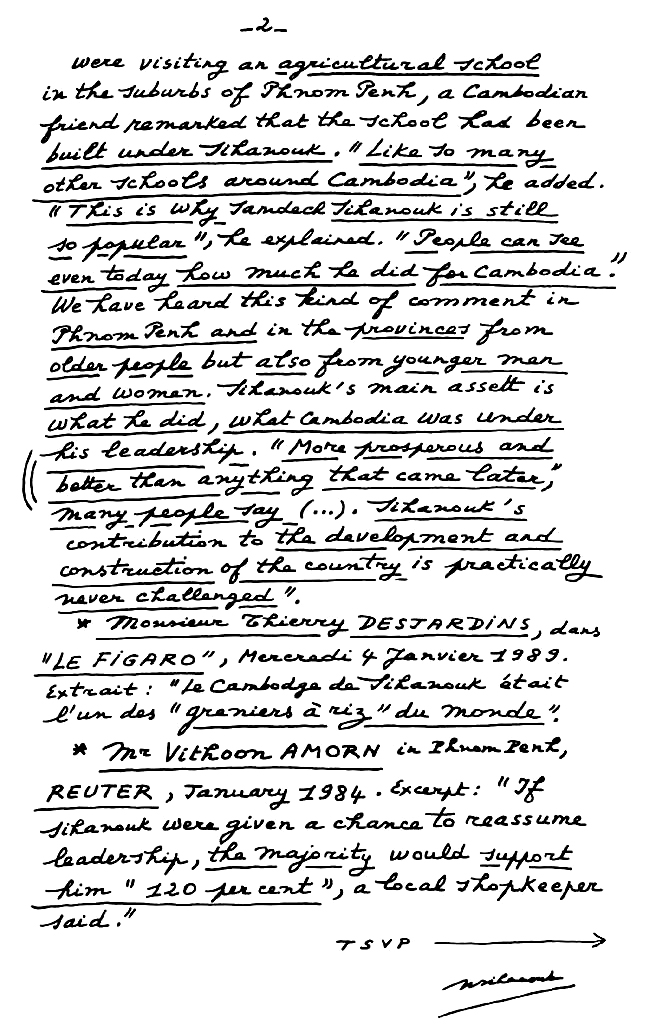 -2-
were visiting an agricultural school
in the suburbs of Phnom Penh, a Cambodian
friend remarked that the school had been
built under Sihanouk. "Like so many
other schools around Cambodia", he added.
"This is why Samdech Sihanouk is still
so popular", he explained. "People can see
even today how much he did for Cambodia."
We have heard this kind of comment in
Phnom Penh and in the provinces from
older people but also from younger men
and women. Sihanouk's main assett is
what he did, what Cambodia was under
his leadership. "More prosperous and
better than anything that came later,"
many people say (...). Sihanouk's
contribution to the development and
construction of the country is practically
never challenged".
* Monsieur Thierry DESJARDINS, dans
"LE FIGARO", Mercredi 4 Janvier 1989.
Extrait : "Le Cambodge de Sihanouk était
l'un des "greniers à riz" du monde".
* Mr Vithoon AMORN in Phnom Penh,
REUTER, January 1984. Excerpt : "If
Sihanouk were given a chance to reassume
leadership, the majority would support
him "120 per cent", a local shopkeeper
said."
TSVP